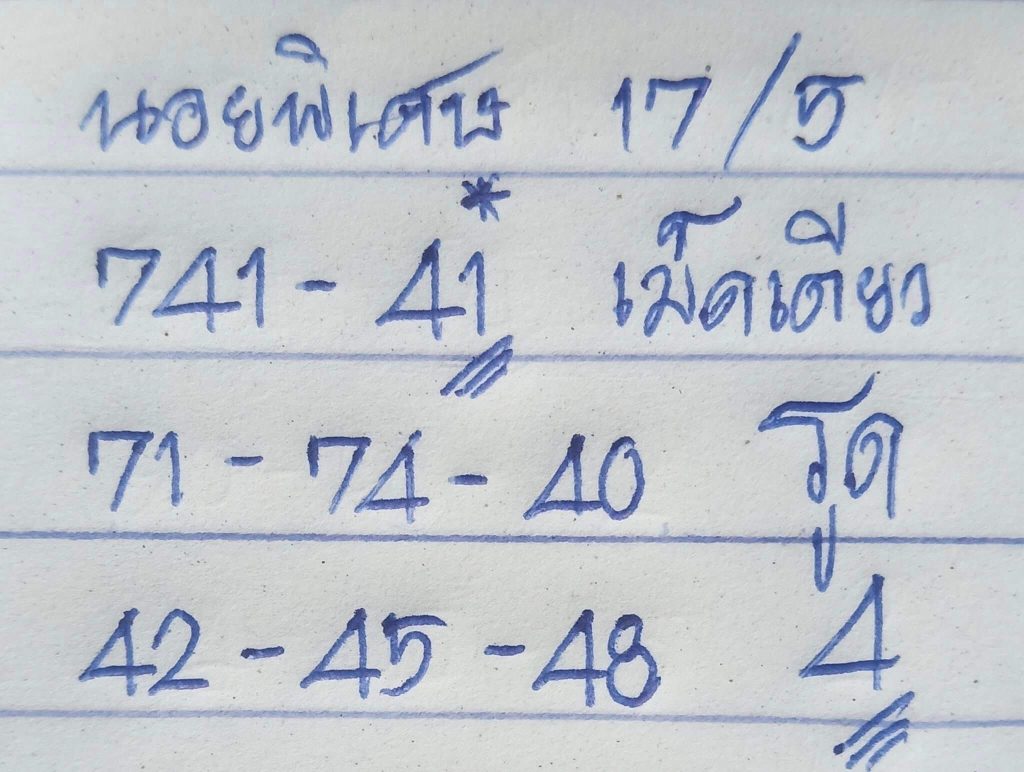 นอยพิเศษ 17/5
741 - 41* เม็ดเดียว
71 - 74 - 40 รูด
42 - 45 - 48 4